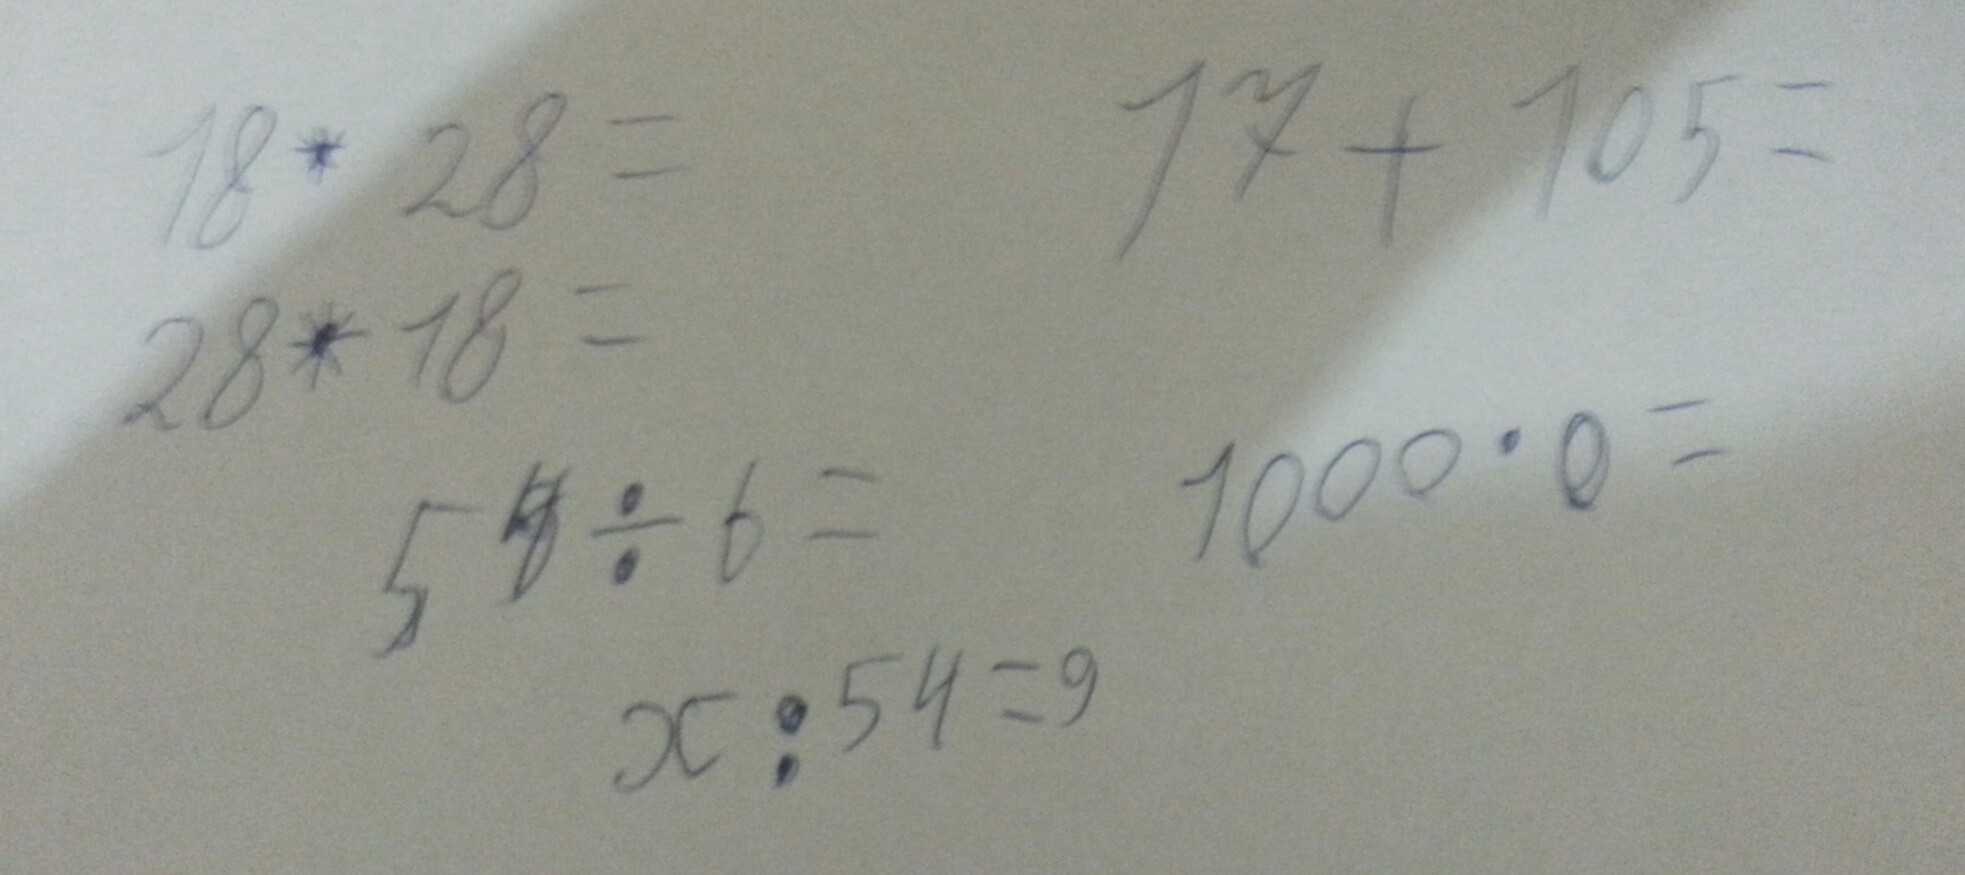 18 * 28 =
17 + 105 =
28 * 18 =
54 ÷ 6 =
1000 · 0 =
x : 54 = 9